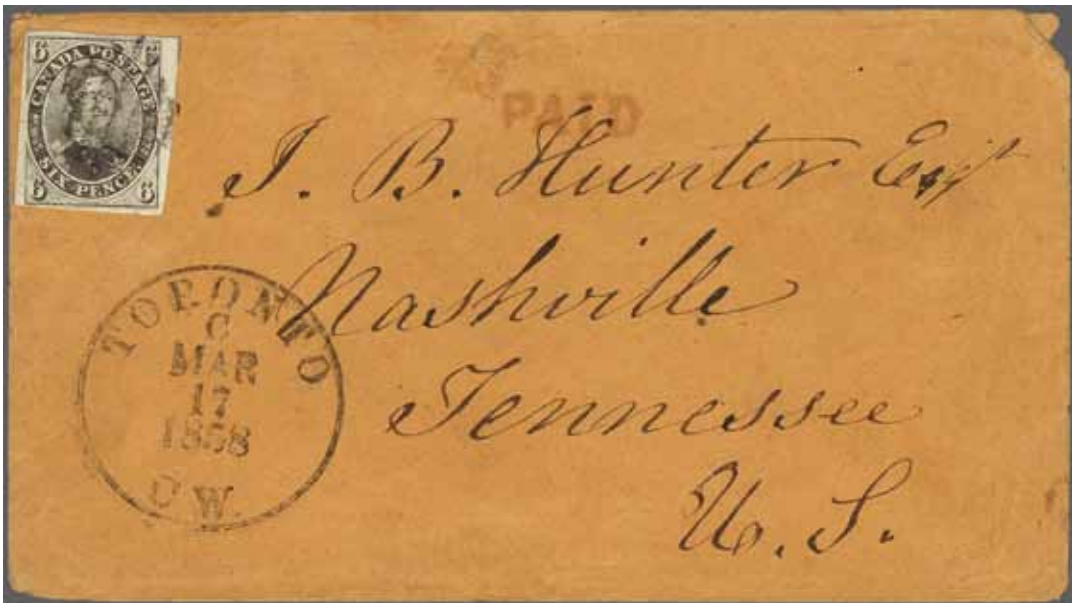 6 6
CANADA POSTAGE
SIX PENCE
6 6
PAID
J. B. Hunter Esqr
Nashville
Tennessee
U. S.
TORONTO
C
MAR
17
1858
C. W.